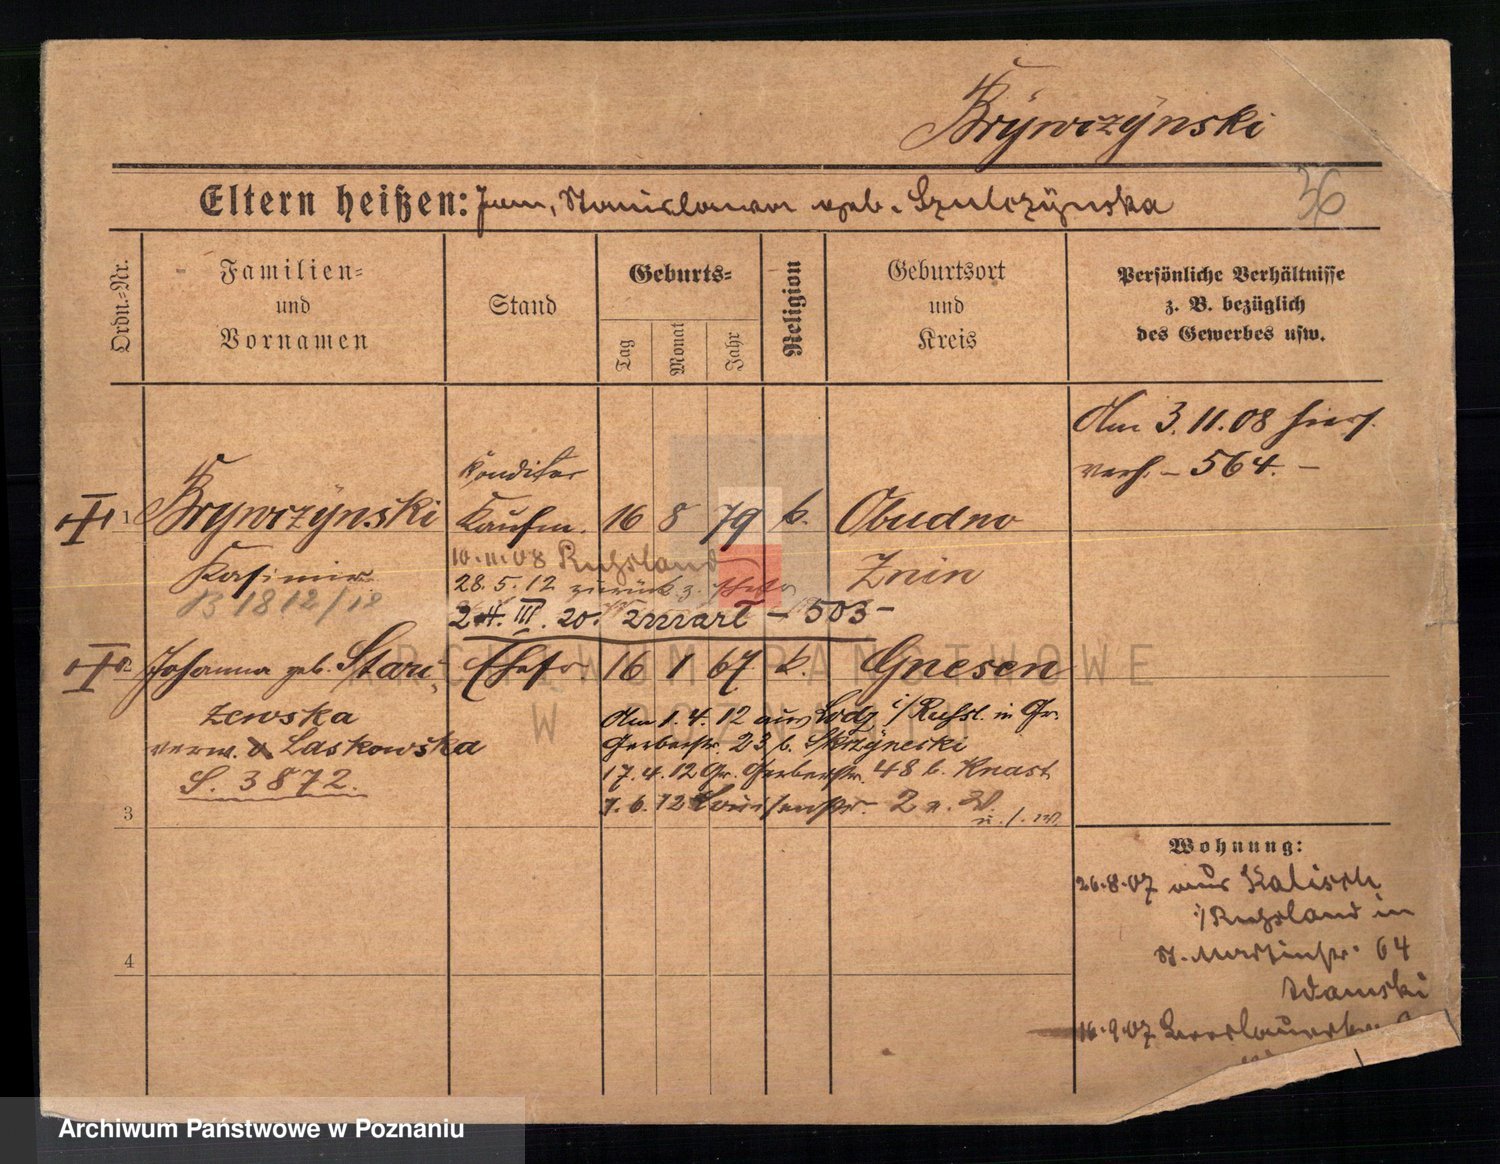 Brÿwczÿnski
Eltern heißen: Jan, Stanislawa geb. Szulczÿnska
36
Ordn.-Nr.
Familien-
und
Vornamen
Stand
Geburts-
Tag
Monat
Jahr
Religion
Geburtsort
und
Kreis
Persönliche Verhältnisse
z. B. bezüglich
des Gewerbes usw.
Am 3.11.08 hier
verh. - 564. -
Konditor
1 Brywczÿnski Kaufm. 16 8 79 k. Obudno
Kasimir Znin
B 1812/12
10.11.08 Rußland
28.5.12 zurück z. Ehefr
24. III. 20. - 503 -
2 Johanna geb. Stari Ehefr 16 1 67 k. Gnesen
zewska
verw. Laskowska
S. 3872.
Am 1.4.12 aus Lodz i/Rußl. in Gr.
Gerberstr. 23 b. Skrzÿneski
17.4.12 Gr. Gerberstr. 48 b. Knast
7.6.12 Louisenstr. 2 a. W.
u. s. w.
3
4
Wohnung:
26.8.07 aus Kalisch
i/Rußland in
St. Martinstr. 64
Adamski
16.9.07
ARCHIWUM PAŃSTWOWE
W POZNANIU
Archiwum Państwowe w Poznaniu